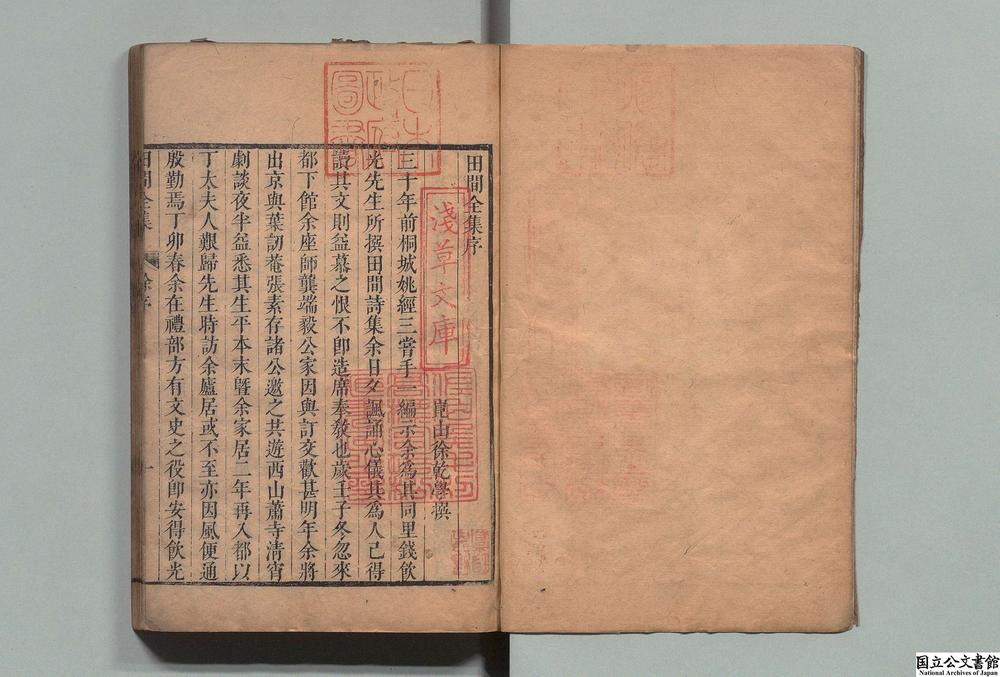 田間全集序
崑山徐乾學撰
三十年前桐城姚經三嘗手一編示余為其同里錢飲
光先生所撰田間詩集余日夕諷誦心儀其為人已得
讀其文則益慕之恨不卽造席奉敎也歲壬子冬忽來
都下館余座師龔端毅公家因與訂交歡甚明年余將
出京與葉訒菴張素存諸公邀之共遊西山蕭寺清宵
劇談夜半益悉其生平本末曁余家居二年再入都以
丁太夫人艱歸先生時訪余廬居或不至亦因風便通
殷勤焉丁卯春余在禮部方有文史之役卽安得飲光
田間全集
徐序
一
淺草文庫
圖書
国立公文書館
National Archives of Japan